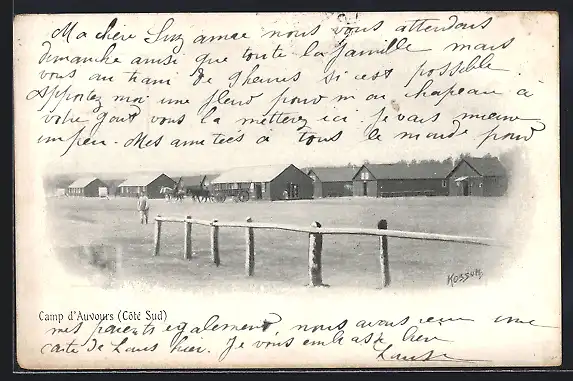 Ma chère Suzanne nous vous attendons
dimanche ainsi que toute la famille mais
vous au train de 9 heures si c'est possible.
Apportez moi une fleur pour mon chapeau à
votre gout vous la metterez ici je vais mieux
un peu. Mes amitiés à tous le monde pour
Kossuth
Camp d'Auvours (Côté Sud)
mes parents également, nous avons une
carte de Louis hier. Je vous embrasse bien